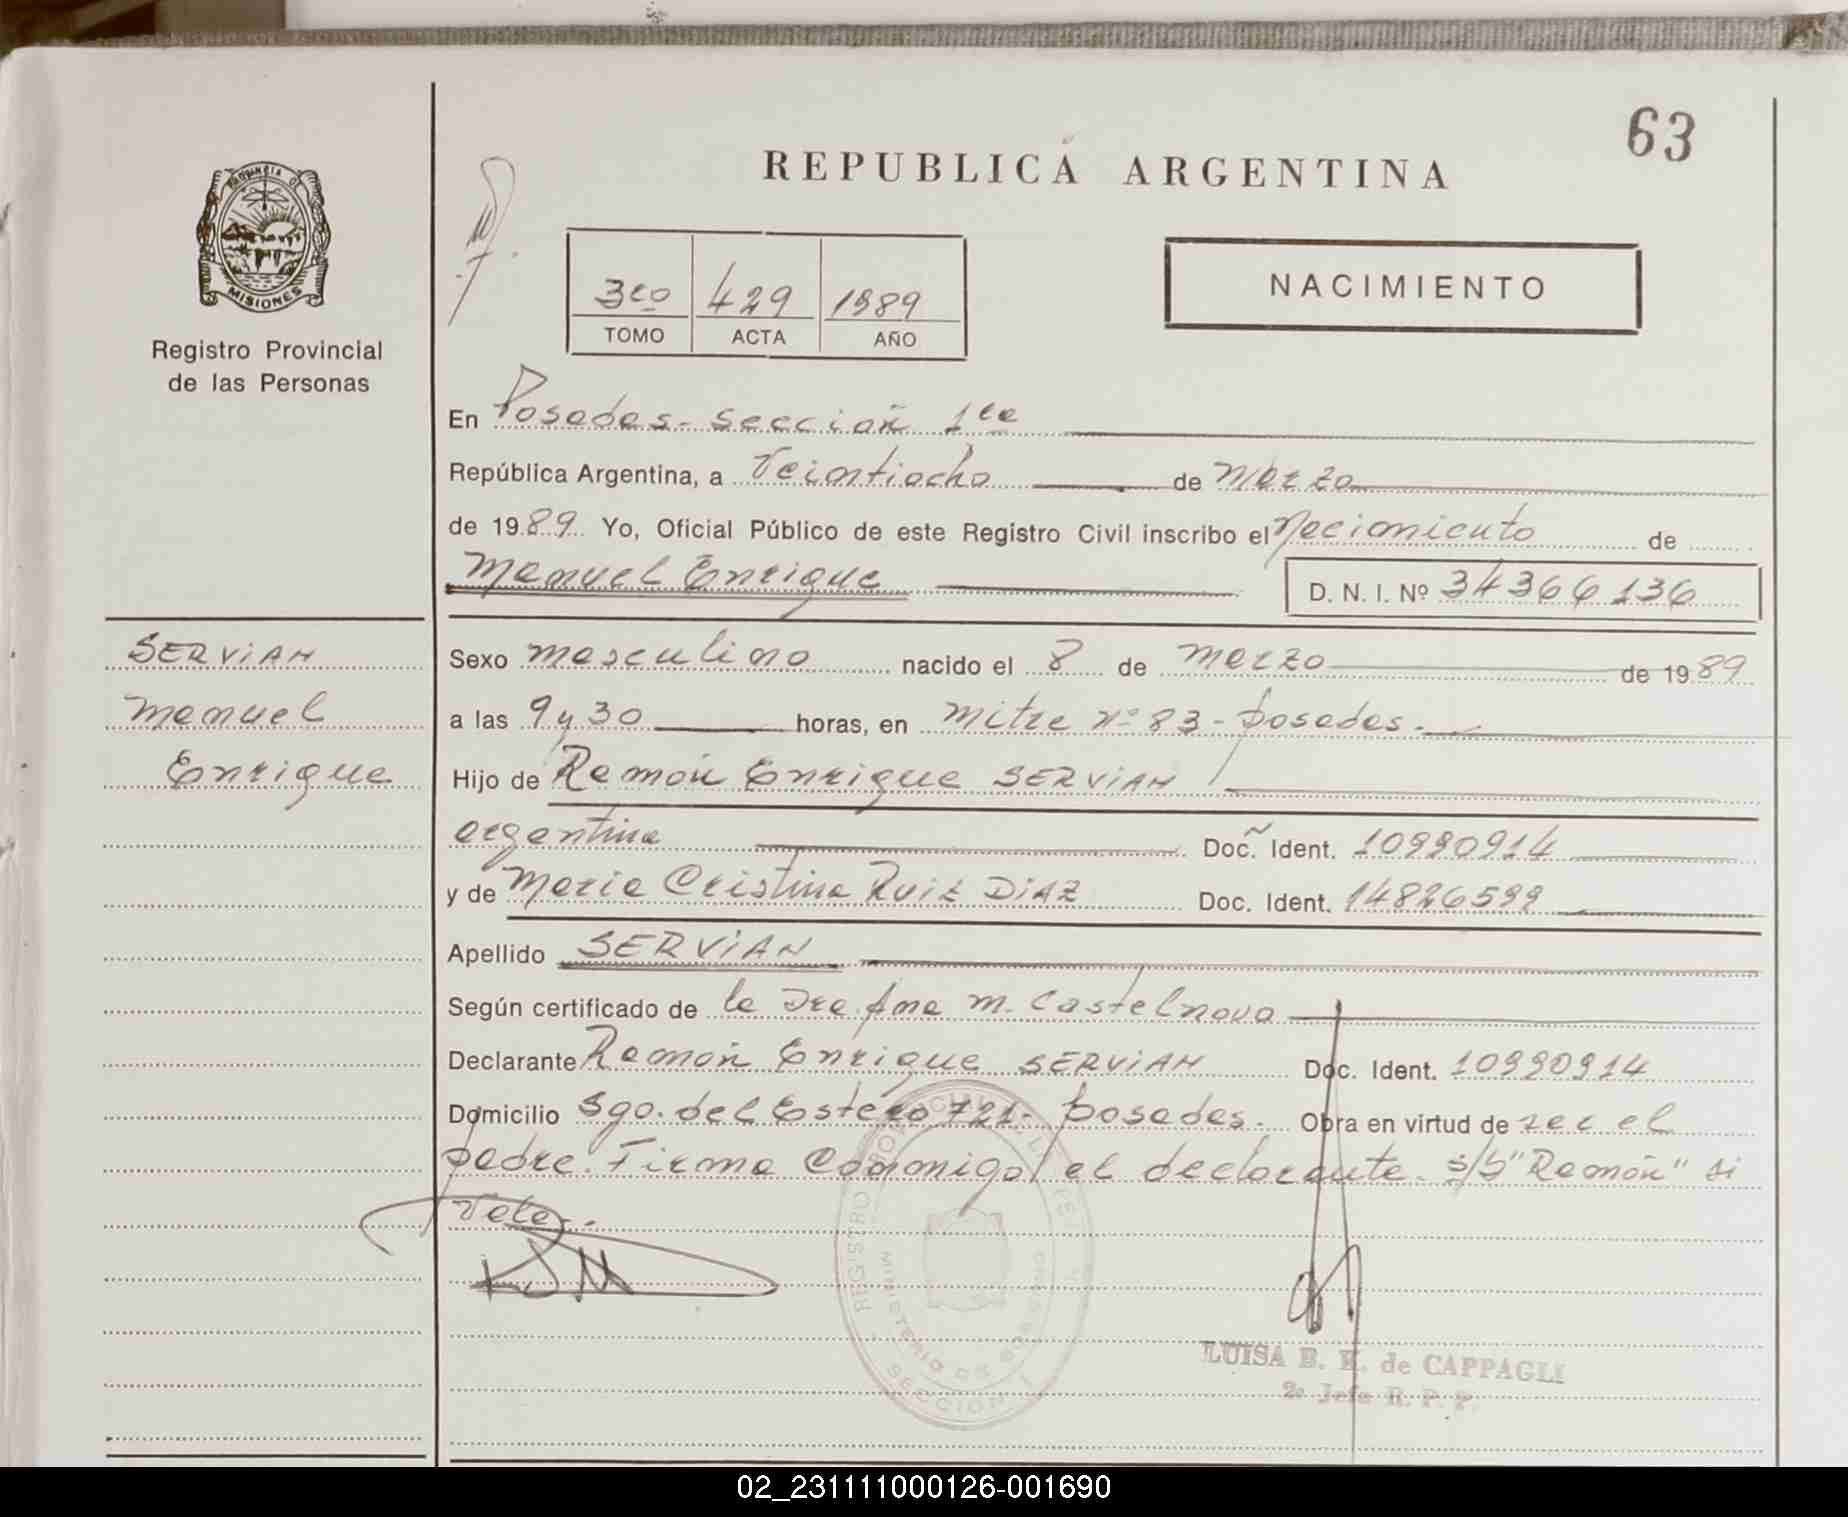 63
REPUBLICA ARGENTINA
PROVINCIA D
MISIONES
Registro Provincial
de las Personas
3ro 429 1989
TOMO ACTA AÑO
NACIMIENTO
En Posadas - sección 1ra
República Argentina, a Veintiocho de Marzo
de 1989. Yo, Oficial Público de este Registro Civil inscribo el Nacimiento de
Manuel Enrique D. N. I. Nº 34366136
SERViAN
Manuel
Enrique
Sexo masculino nacido el 8 de Marzo de 1989
a las 9 y 30 horas, en Mitre nº 83 - posadas.-
Hijo de Ramón Enrique SERViAN
argentina Doc. Ident. 10990914
y de Maria Cristina RUiZ DiAZ Doc. Ident. 14826599
Apellido SERViAN
Según certificado de la Dra. Ana M. Castelnovo
Declarante Ramón Enrique SERViAN Doc. Ident. 10990914
Domicilio Sgo. del Estero 721 - posadas. Obra en virtud de ser el
padre. Firma conmigo el declarante. s/b "Ramón" si
Vale.-
LUISA E. K. de CAPPAGLI
2º Jefe R. P. P.
SECCION 1
02_231111000126-001690